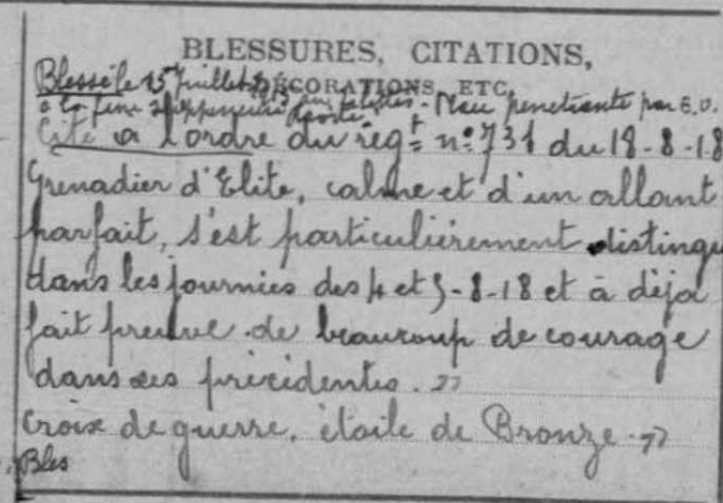 BLESSURES, CITATIONS,
DÉCORATIONS, ETC.
Blessé le 15 Juillet
à la - Plaie penetrante par E.O.
Cité à l'ordre du régt nº 731 du 18-8-18
Grenadier d'Elite, calme et d'un allant
parfait, s'est particuliérement distingu
dans les journies des 4 et 5-8-18 et à déja
fait preuve de beaucoup de courage
dans les précidentes. "
Croix de guerre, étoile de Bronze. "
Bles